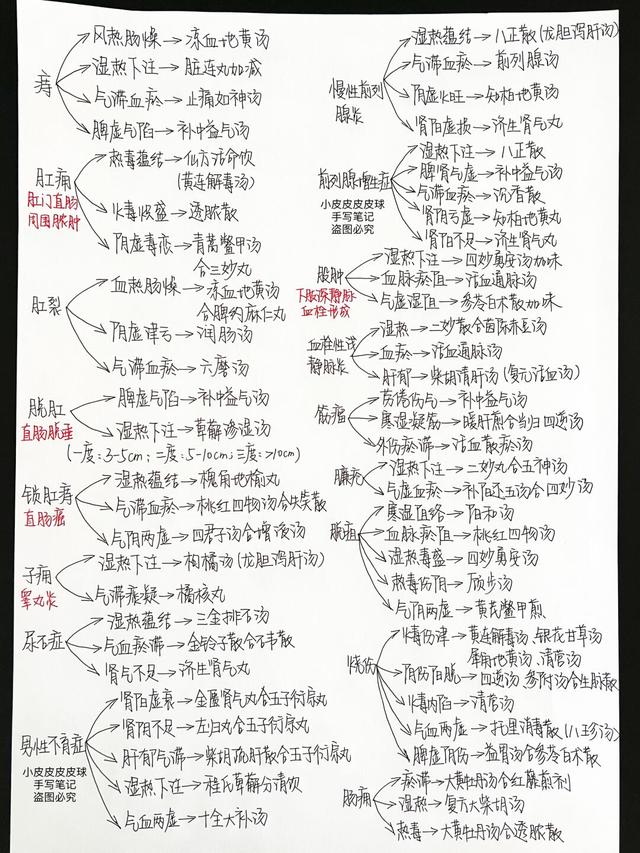 痔
风热肠燥→凉血地黄汤
湿热下注→脏连丸加减
气滞血瘀→止痛如神汤
脾虚气陷→补中益气汤
肛痈
肛门直肠
周围脓肿
热毒蕴结→仙方活命饮
(黄连解毒汤)
火毒炽盛→透脓散
阴虚毒恋→青蒿鳖甲汤
合三妙丸
肛裂
血热肠燥→凉血地黄汤
合脾约麻仁丸
阴虚津亏→润肠汤
气滞血瘀→六磨汤
脱肛
直肠脱垂
脾虚气陷→补中益气汤
湿热下注→萆薢渗湿汤
(一度:3-5cm;二度:5-10cm;三度:>10cm)
锁肛痔
直肠癌
湿热蕴结→槐角地榆丸
气滞血瘀→桃红四物汤合失笑散
气阴两虚→四君子汤合增液汤
子痈
睾丸炎
湿热下注→枸橘汤(龙胆泻肝汤)
气滞痰凝→橘核丸
尿石症
湿热蕴结→三金排石汤
气血瘀滞→金铃子散合石韦散
肾气不足→济生肾气丸
男性不育症
小皮皮皮皮球
手写笔记
盗图必究
肾阳虚衰→金匮肾气丸合五子衍宗丸
肾阴不足→左归丸合五子衍宗丸
肝郁气滞→柴胡疏肝散合五子衍宗丸
湿热下注→程氏萆薢分清饮
气血两虚→十全大补汤
慢性前列
腺炎
湿热蕴结→八正散(龙胆泻肝汤)
气滞血瘀→前列腺汤
阴虚火旺→知柏地黄汤
肾阳虚损→济生肾气丸
前列腺增生症
小皮皮皮皮球
手写笔记
盗图必究
湿热下注→八正散
脾肾气虚→补中益气汤
气滞血瘀→沉香散
肾阴亏虚→知柏地黄丸
肾阳不足→济生肾气丸
股肿
下肢深静脉
血栓形成
湿热下注→四妙勇安汤加味
血脉瘀阻→活血通脉汤
气虚湿阻→参苓白术散加味
血栓性浅
静脉炎
湿热→二妙散合茵陈赤豆汤
血瘀→活血通脉汤
肝郁→柴胡清肝汤(复元活血汤)
筋瘤
劳倦伤气→补中益气汤
寒湿凝筋→暖肝煎合当归四逆汤
外伤瘀滞→活血散瘀汤
臁疮
湿热下注→二妙丸合五神汤
气虚血瘀→补阳还五汤合四妙汤
脱疽
寒湿阻络→阳和汤
血脉瘀阻→桃红四物汤
湿热毒盛→四妙勇安汤
热毒伤阴→顾步汤
气阴两虚→黄芪鳖甲煎
烧伤
火毒伤津→黄连解毒汤、银花甘草汤
犀角地黄汤、清营汤
阴伤阳脱→四逆汤、参附汤合生脉散
火毒内陷→清营汤
气血两虚→托里消毒散(八珍汤)
脾虚阴伤→益胃汤合参苓白术散
肠痈
瘀滞→大黄牡丹汤合红藤煎剂
湿热→复方大柴胡汤
热毒→大黄牡丹汤合透脓散